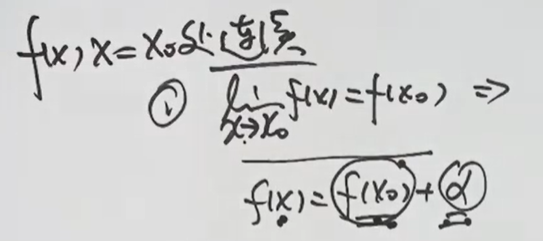 f(x), x=x₀处连续
① lim x→x₀ f(x)=f(x₀) ⇒
f(x)=f(x₀)+α